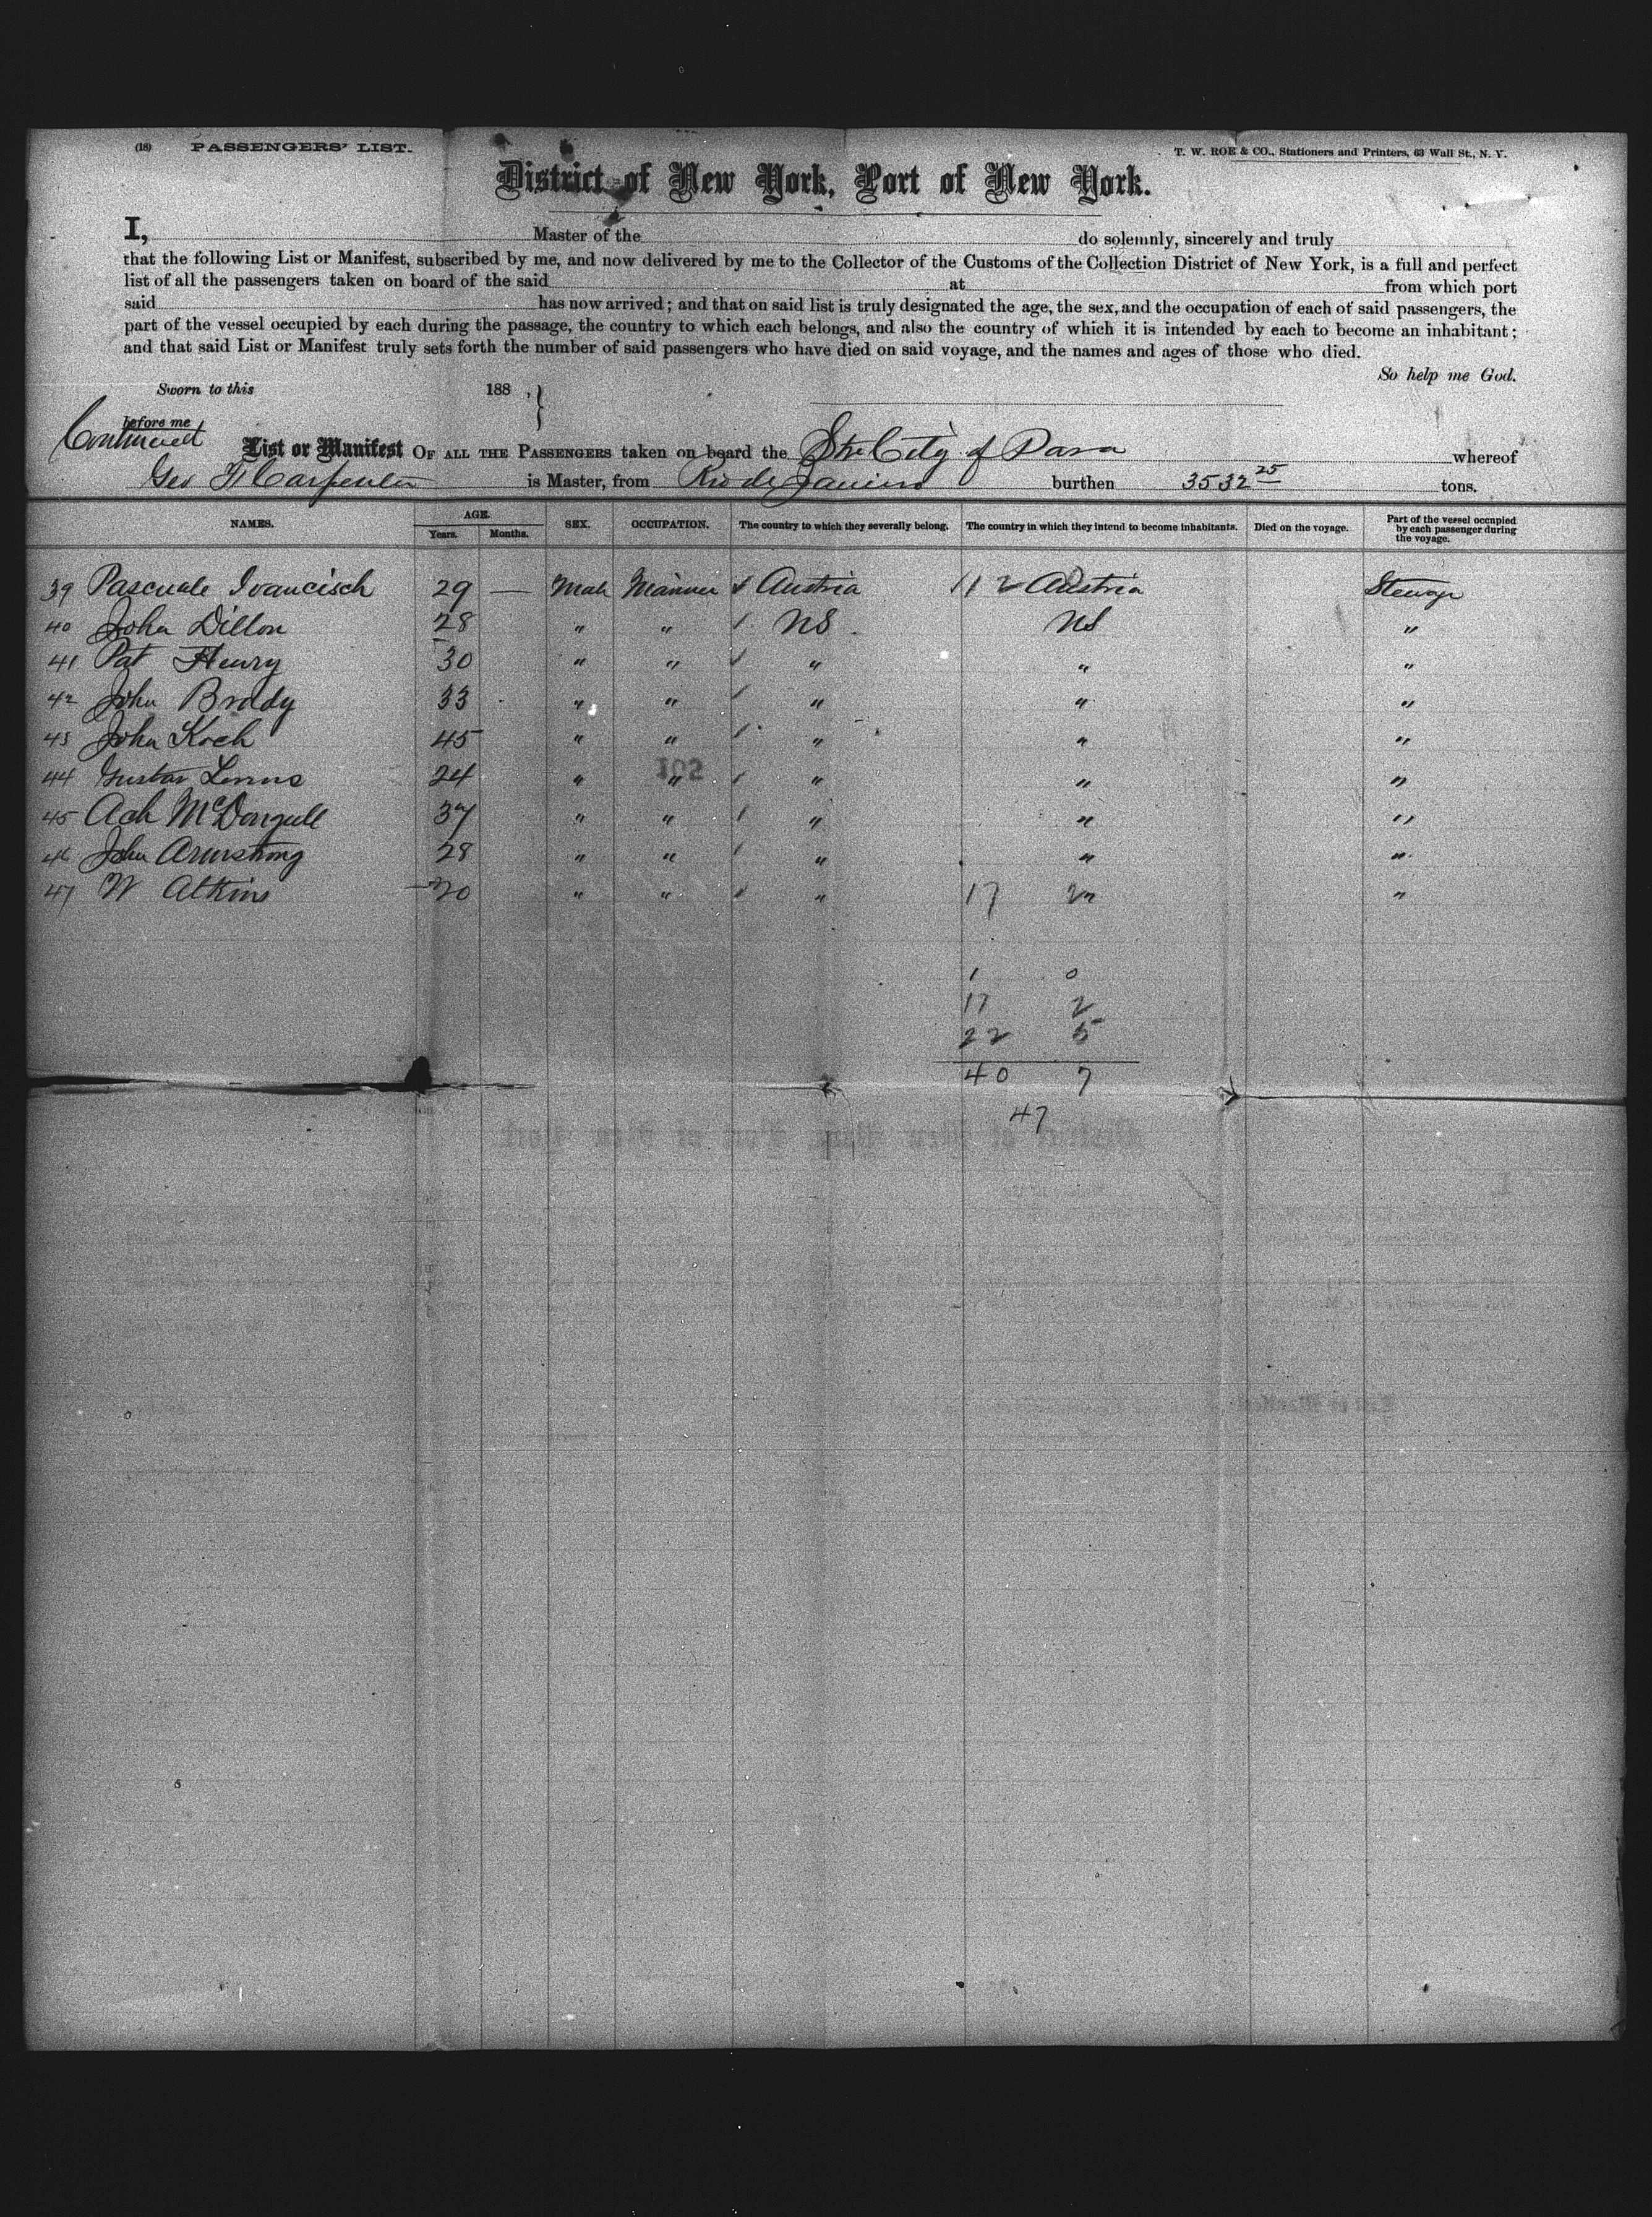 (18) PASSENGERS' LIST.
T. W. ROE & CO., Stationers and Printers, 63 Wall St., N. Y.
District of New York, Port of New York.
I, Master of the do solemnly, sincerely and truly
that the following List or Manifest, subscribed by me, and now delivered by me to the Collector of the Customs of the Collection District of New York, is a full and perfect
list of all the passengers taken on board of the said at from which port
said has now arrived; and that on said list is truly designated the age, the sex, and the occupation of each of said passengers, the
part of the vessel occupied by each during the passage, the country to which each belongs, and also the country of which it is intended by each to become an inhabitant;
and that said List or Manifest truly sets forth the number of said passengers who have died on said voyage, and the names and ages of those who died.
So help me God.
Sworn to this 188 ,
before me
Continued
List or Manifest OF ALL THE PASSENGERS taken on board the Str City of Para whereof
Geo F Carpenter is Master, from Rio de Janeiro burthen 3532 25 tons.
NAMES. AGE. Years. Months. SEX. OCCUPATION. The country to which they severally belong. The country in which they intend to become inhabitants. Died on the voyage. Part of the vessel occupied by each passenger during the voyage.
39 Pascuale Ivancisch 29 — Male Mariner Austria 11 2 Austria Steerage
40 John Dillon 28 " " US US "
41 Pat Henry 30 " " " " "
42 John Brady 33 " " " " "
43 John Koch 45 " " " " "
44 Gustav 24 " " " " "
45 Arch McDongall 37 " " " " "
46 John Armstrong 28 " " " " "
47 W Atkins 20 " " " 17 "
1 0
17 2
22 5
40 7
47